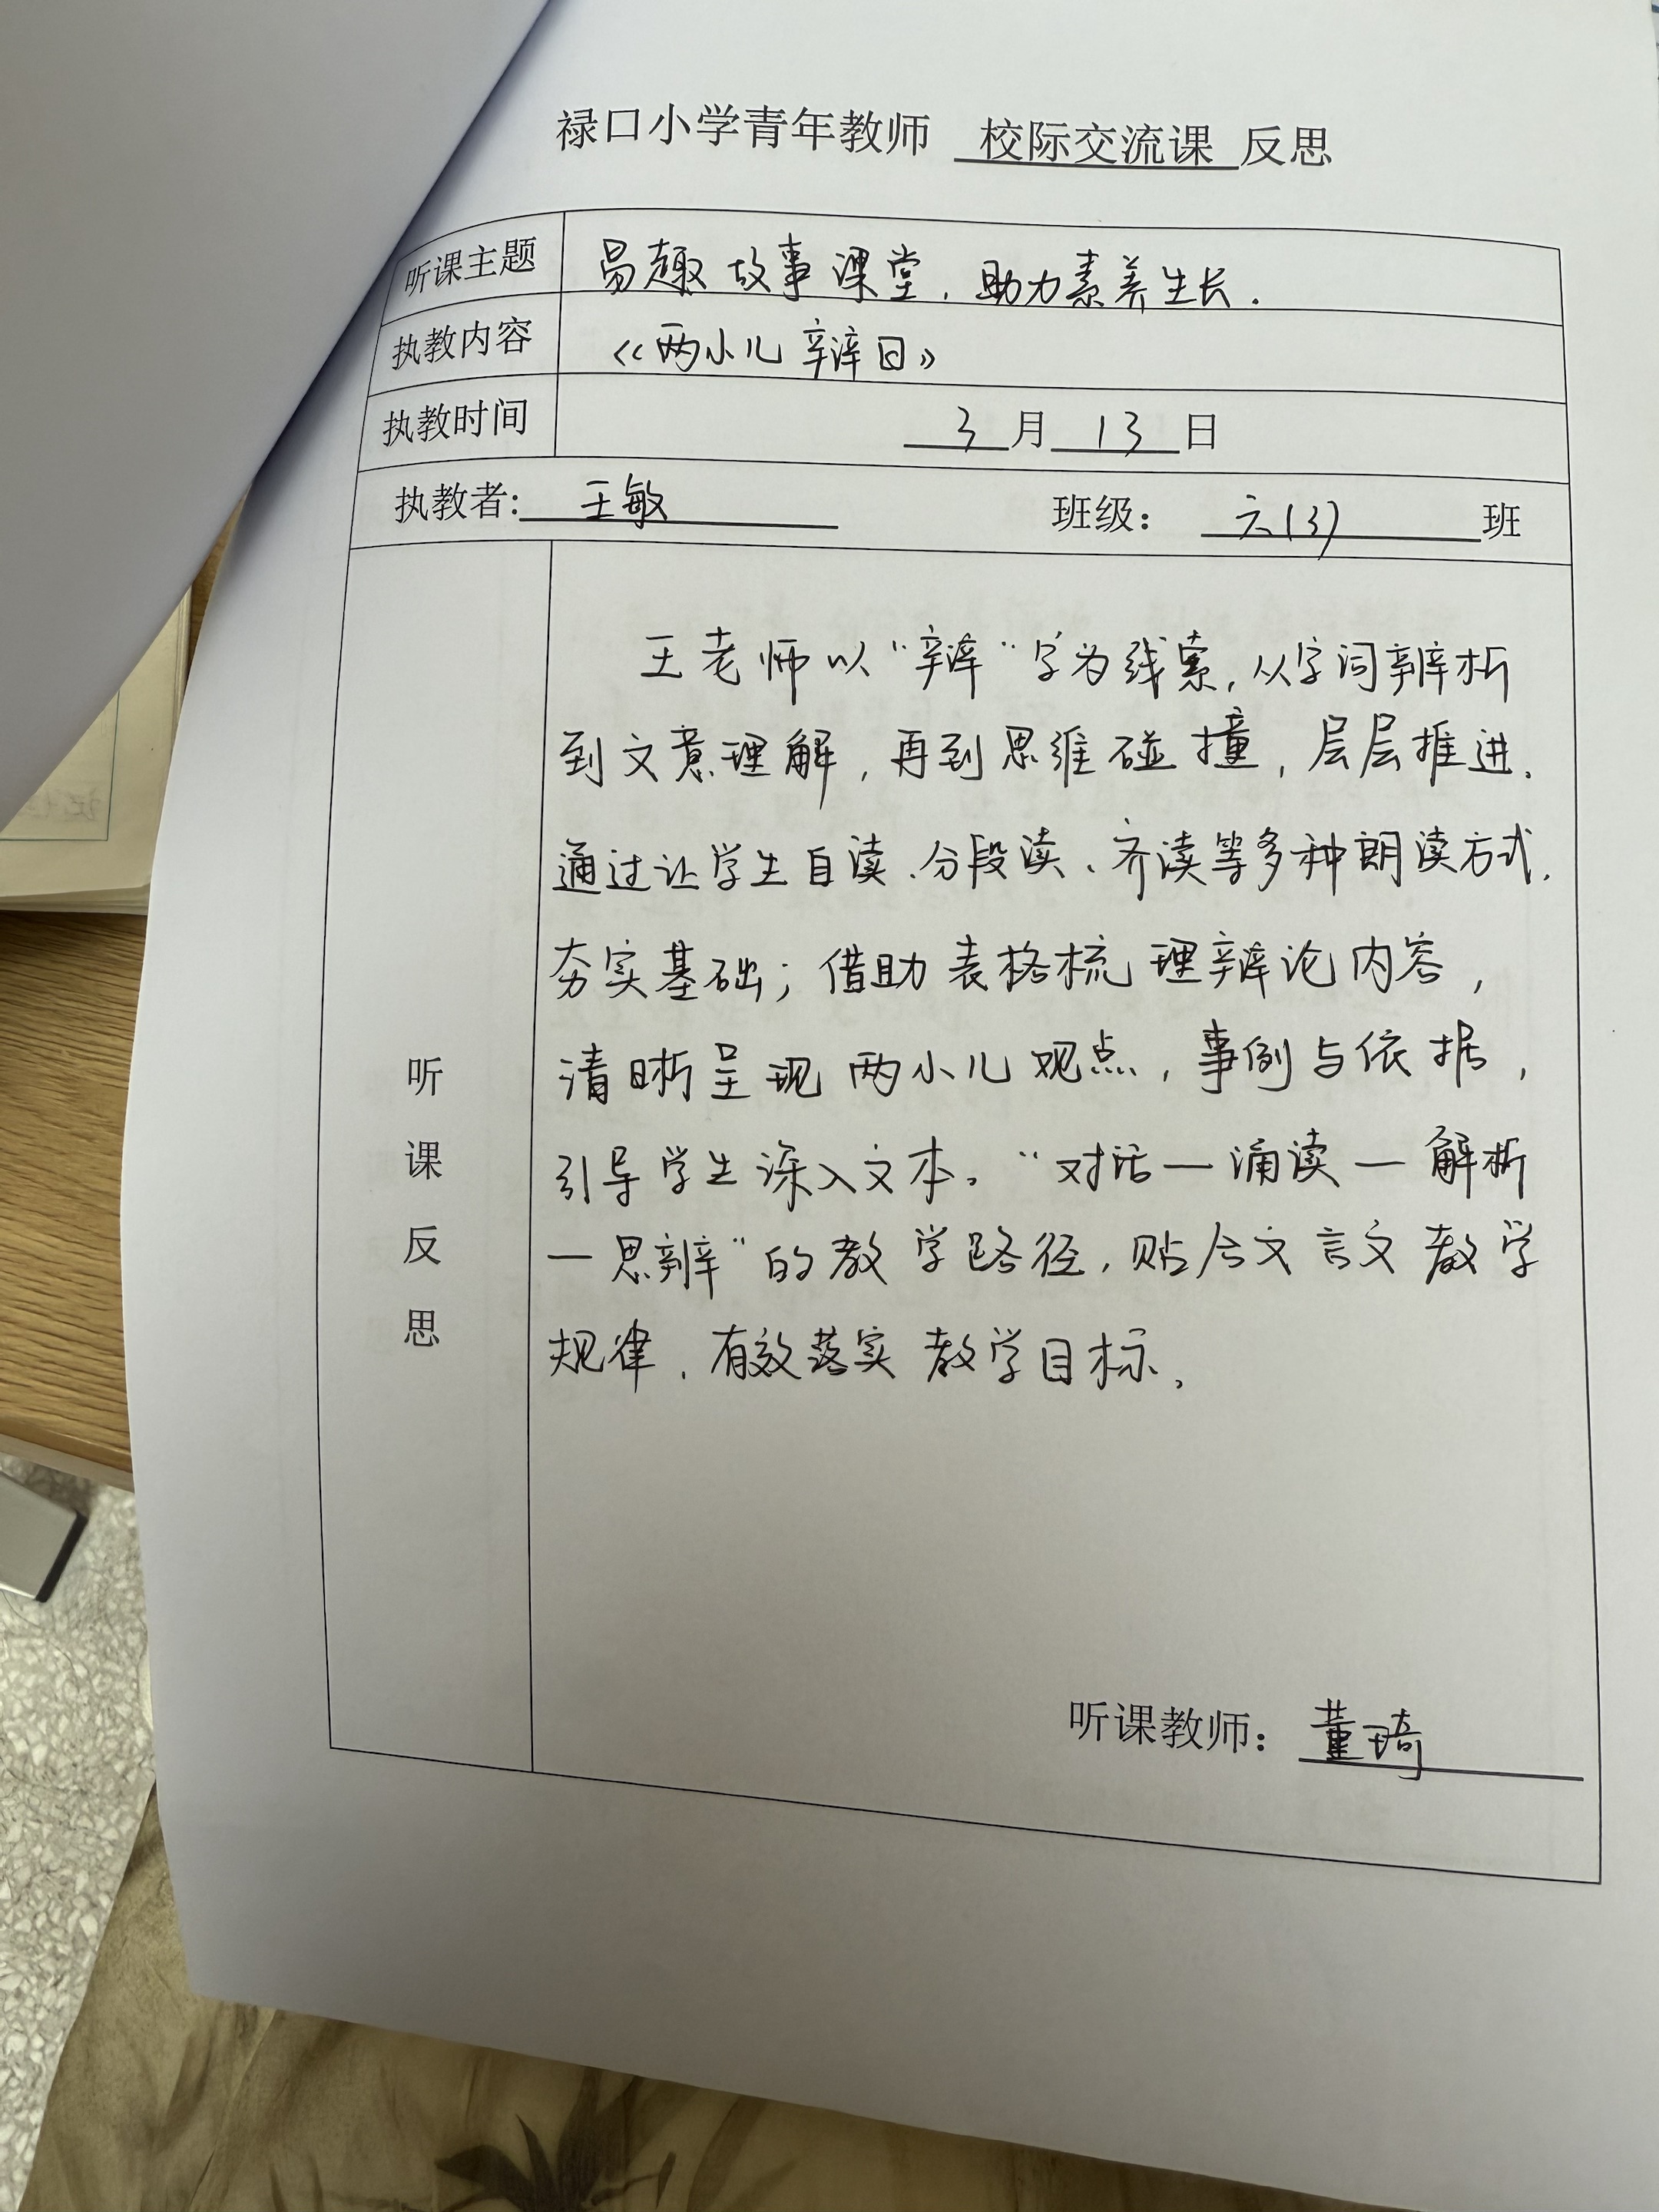 禄口小学青年教师 校际交流课 反思
听课主题 易趣故事课堂，助力素养生长.
执教内容 《两小儿辩日》
执教时间 3月13日
执教者: 王敏 班级： 六(3) 班
王老师以“辩”字为线索，从字词辨析
到文意理解，再到思维碰撞，层层推进。
通过让学生自读、分段读、齐读等多种朗读方式，
夯实基础；借助表格梳理辩论内容，
清晰呈现两小儿观点，事例与依据，
引导学生深入文本。“对话—诵读—解析
—思辨”的教学路径，贴合文言文教学
规律，有效落实教学目标。
听
课
反
思
听课教师： 董琦